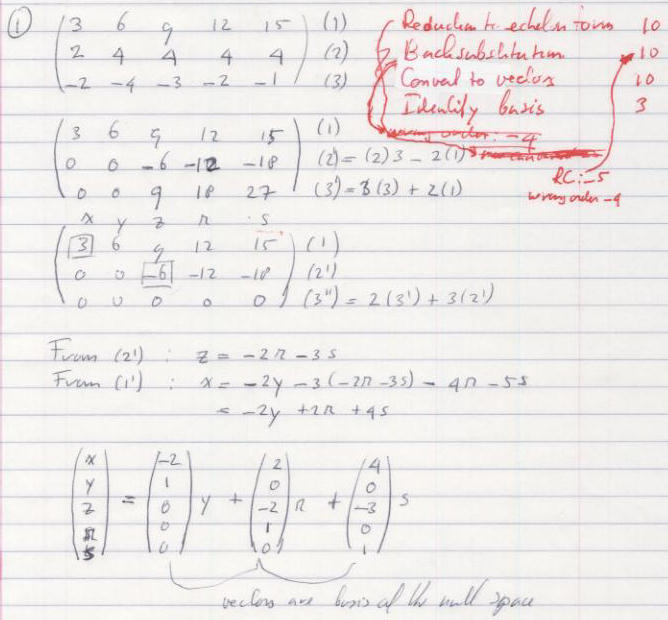 ① ( 3 6 9 12 15 ) (1)
( 2 4 4 4 4 ) (2)
( -2 -4 -3 -2 -1 ) (3)
Reduction to echelon form 10
Backsubstitution 10
Convert to vectors 10
Identify basis 3
wrong order: -4
RC: -5
wrong order -4
( 3 6 9 12 15 ) (1)
( 0 0 -6 -12 -18 ) (2') = (2)3 - 2(1)
( 0 0 9 18 27 ) (3') = 3(3) + 2(1)
x y z r s
( 3 6 9 12 15 ) (1)
( 0 0 -6 -12 -18 ) (2')
( 0 0 0 0 0 ) (3'') = 2(3') + 3(2')
From (2') : z = -2r - 3s
From (1') : x = -2y - 3(-2r - 3s) - 4r - 5s
= -2y + 2r + 4s
( x ) ( -2 ) ( 2 ) ( 4 )
( y ) ( 1 ) ( 0 ) ( 0 )
( z ) = ( 0 ) y + ( -2 ) r + ( -3 ) s
( r ) ( 0 ) ( 1 ) ( 0 )
( s ) ( 0 ) ( 0 ) ( 1 )
vectors are basis of the null space